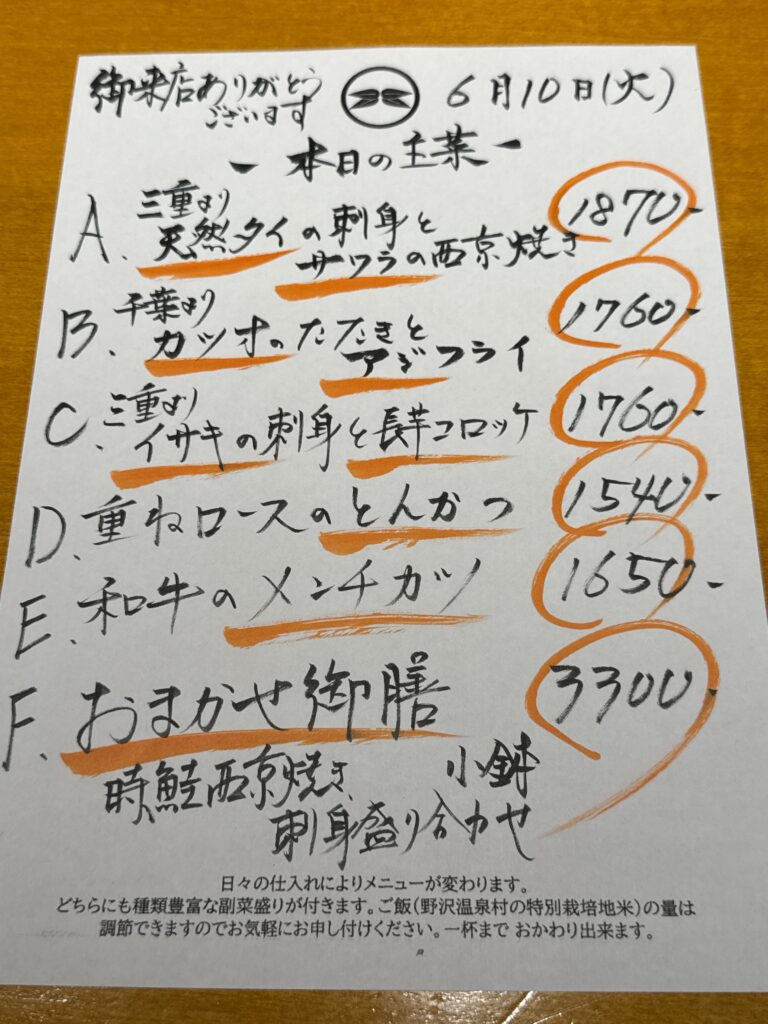 御来店ありがとう
ございます
6月10日(火)
- 本日の主菜 -
A. 三重より
天然タイの刺身と
サワラの西京焼き
1870-
B. 千葉より
カツオのたたきと
アジフライ
1760-
C. 三重より
イサキの刺身と長芋コロッケ
1760-
D. 重ねロースのとんかつ
1540-
E. 和牛のメンチカツ
1650-
F. おまかせ御膳
3300-
時鮭西京焼き 小鉢
刺身盛り合わせ
日々の仕入れによりメニューが変わります。
どちらにも種類豊富な副菜盛りが付きます。ご飯(野沢温泉村の特別栽培地米)の量は
調節できますのでお気軽にお申し付けください。一杯まで おかわり出来ます。